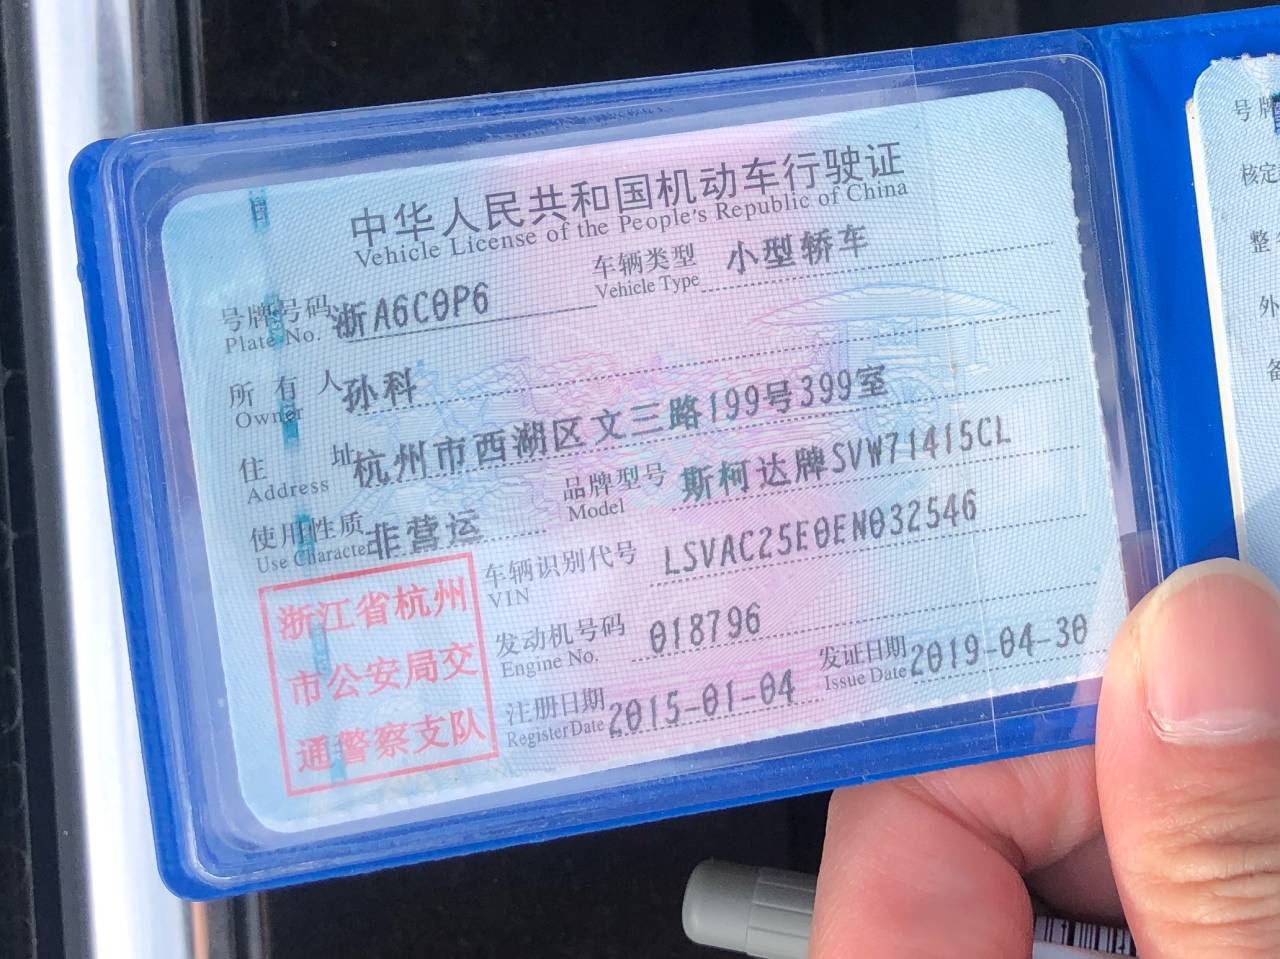 中华人民共和国机动车行驶证
Vehicle License of the People's Republic of China
号牌号码 浙A6C0P6 车辆类型 小型轿车
Plate No. Vehicle Type
所有人 孙科
Owner
住址 杭州市西湖区文三路199号399室
Address
使用性质 非营运 品牌型号 斯柯达牌SVW71415CL
Use Character Model
浙江省杭州
市公安局交
通警察支队
车辆识别代号 LSVAC25E0EN032546
VIN
发动机号码 018796
Engine No.
注册日期 2015-01-04 发证日期 2019-04-30
Register Date Issue Date
号牌
核定
整
外